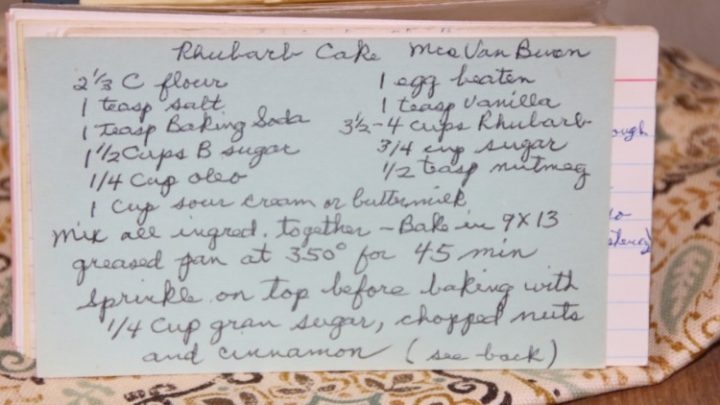 Rhubarb Cake Mrs Van Buren
2 1/3 C flour
1 teasp salt
1 Teasp Baking Soda
1 1/2 Cups B sugar
1/4 Cup oleo
1 egg beaten
1 teasp Vanilla
3 1/2 - 4 cups Rhubarb
3/4 cup sugar
1/2 teasp nutmeg
1 Cup sour cream or buttermilk
Mix all ingred. together - Bake in 9X13
greased pan at 350° for 45 min
Sprinkle on top before baking with
1/4 Cup gran sugar, chopped nuts
and cinnamon (see back)
ough